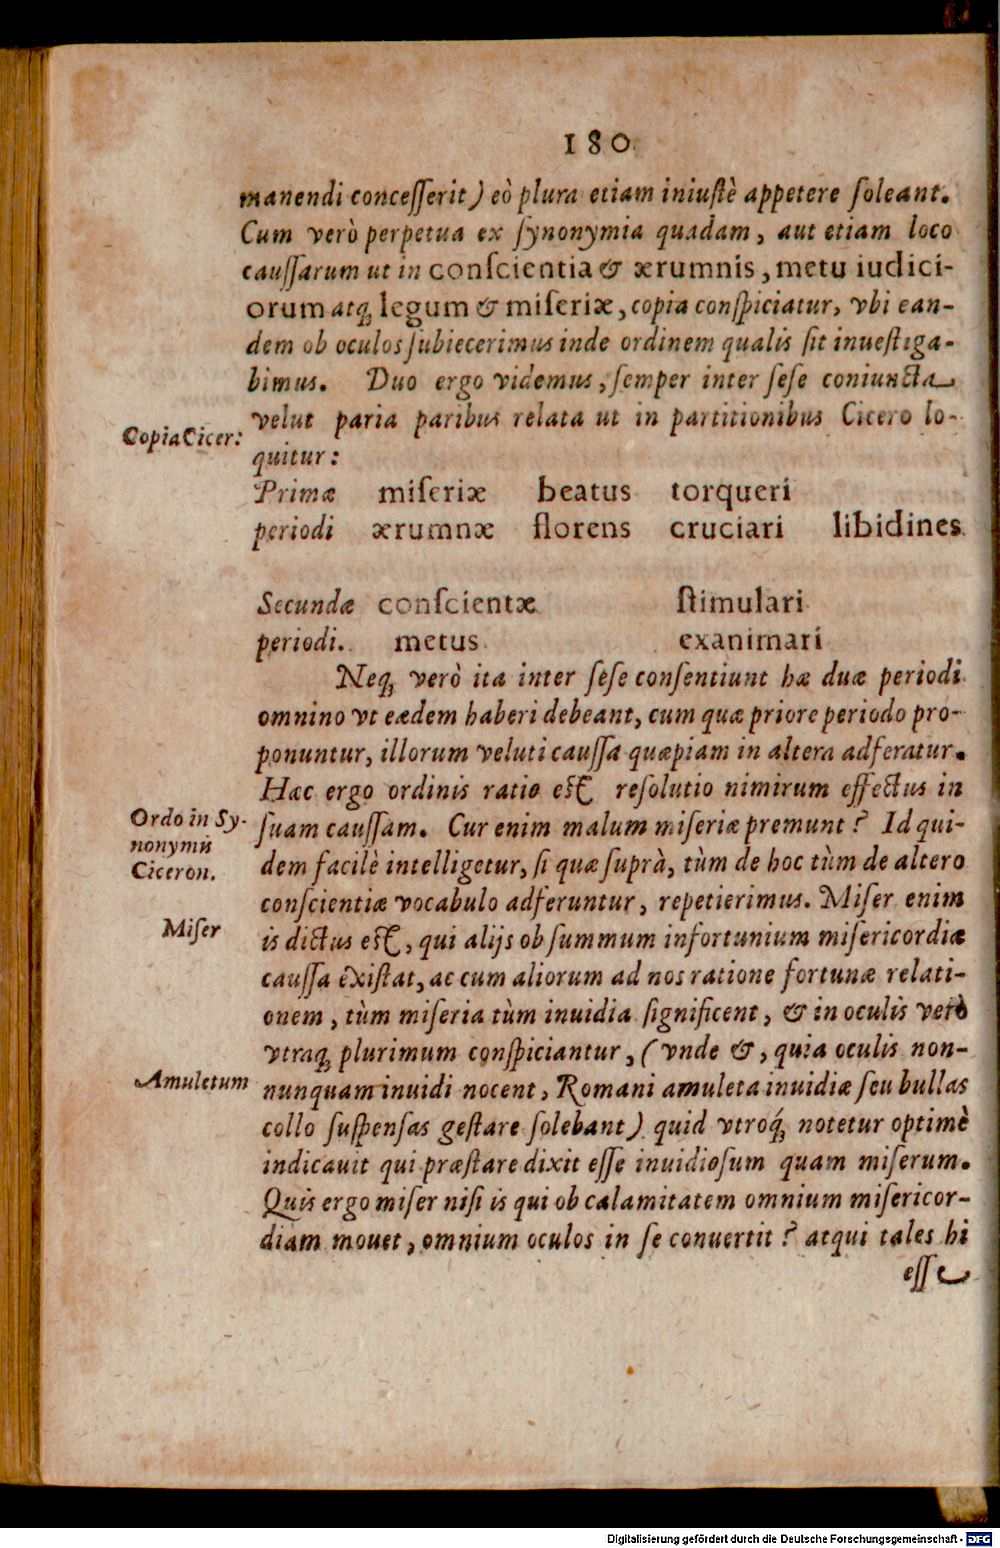 180
manendi concesserit) eò plura etiam iniustè appetere soleant.
Cum verò perpetua ex synonymia quadam, aut etiam loco
caussarum ut in conscientia & ærumnis, metu iudici-
orum atq; legum & miseriæ, copia conspiciatur, vbi ean-
dem ob oculos subiecerimus inde ordinem qualis sit inuestiga-
bimus. Duo ergo videmus, semper inter sese coniuncta
velut paria paribus relata ut in partitionibus Cicero lo-
CopiaCicer:
quitur:
Primæ miseriæ beatus torqueri
periodi ærumnæ florens cruciari libidines
Secundæ conscientæ stimulari
periodi. metus exanimari
Neq; verò ita inter sese consentiunt hæ duæ periodi
omnino vt eædem haberi debeant, cum quæ priore periodo pro-
ponuntur, illorum veluti caussa quæpiam in altera adferatur.
Hæc ergo ordinis ratio est resolutio nimirum effectus in
Ordo in Sy-
nonymis
Ciceron.
suam caussam. Cur enim malum miseriæ premunt? Id qui-
dem facilè intelligetur, si quæ suprà, tùm de hoc tùm de altero
conscientiæ vocabulo adferuntur, repetierimus. Miser enim
Miser
is dictus est, qui alijs ob summum infortunium misericordiæ
caussa existat, ac cum aliorum ad nos ratione fortunæ relati-
onem, tùm miseria tùm inuidia significent, & in oculis verò
vtraq; plurimum conspiciantur, (vnde &, quia oculis non-
Amuletum
nunquam inuidi nocent, Romani amuleta inuidiæ seu bullas
collo suspensas gestare solebant) quid vtroq; notetur optimè
indicauit qui præstare dixit esse inuidiosum quam miserum.
Quis ergo miser nisi is qui ob calamitatem omnium misericor-
diam mouet, omnium oculos in se conuertit? atqui tales hi
esse
Digitalisierung gefördert durch die Deutsche Forschungsgemeinschaft - DFG